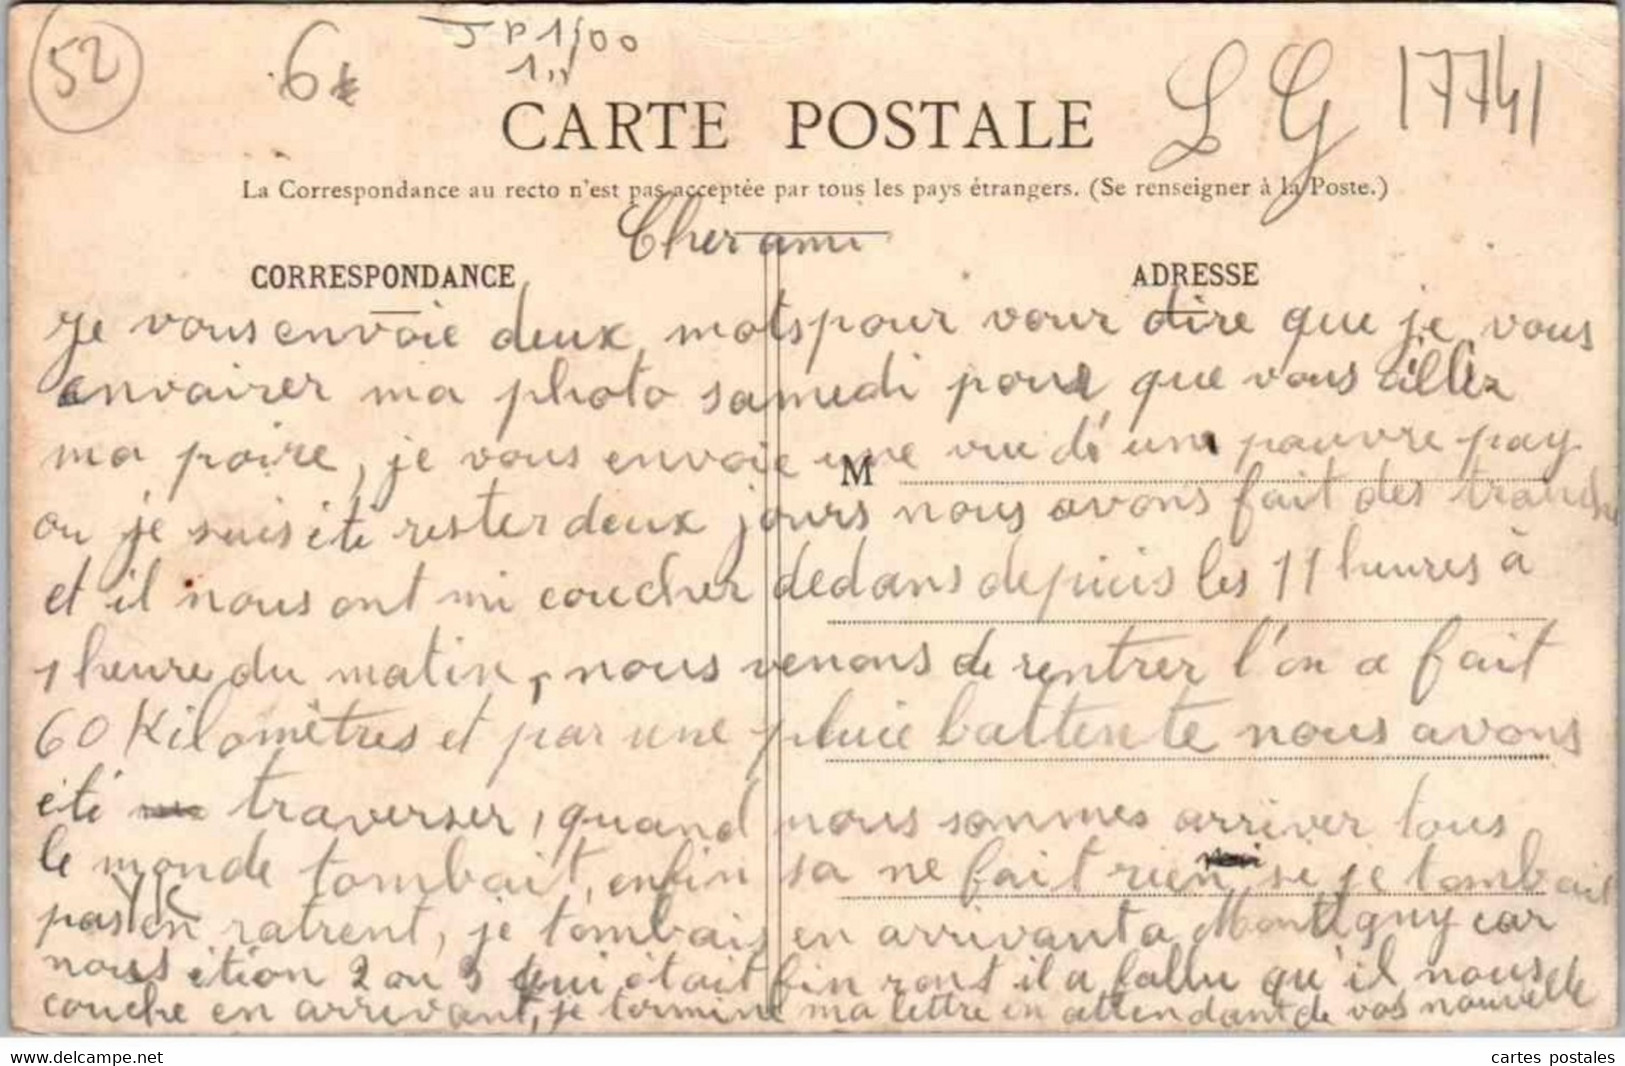 52
6
JP 1/00
1,,
LG
17741
CARTE POSTALE
La Correspondance au recto n'est pas acceptée par tous les pays étrangers. (Se renseigner à la Poste.)
Cher ami
CORRESPONDANCE
ADRESSE
Je vous envoie deux mots pour vour dire que je vous
envairer ma photo samedi pour que vous
ma poire, je vous envoie une vue dé une pauvre pay
M
ou je suis été rester deux jours nous avons fait des
et il nous ont mi coucher dedans depuis les 11 heures à
1 heure du matin, nous venons de rentrer l'on a fait
60 Kilomètres et par une pluie battente nous avons
été traverser, quand nous sommes arriver tous
le monde tombait, enfin sa ne fait rien si je tombait
pas en ratrent, je tombais en arrivant a Montigny car
nous étion 2 ou 3 qui était fin ront il a fallu qu'il nous
couche en arrivant, je termine ma lettre en attendant de vos nouvelle
delcampe.net
cartes postales